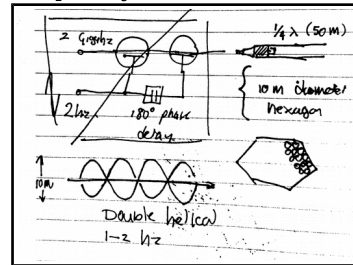 2 Gigahz
1/4 λ (50m)
2hz
180° phase
delay
10 m diameter
hexagon
10m
Double helical
1-2 hz